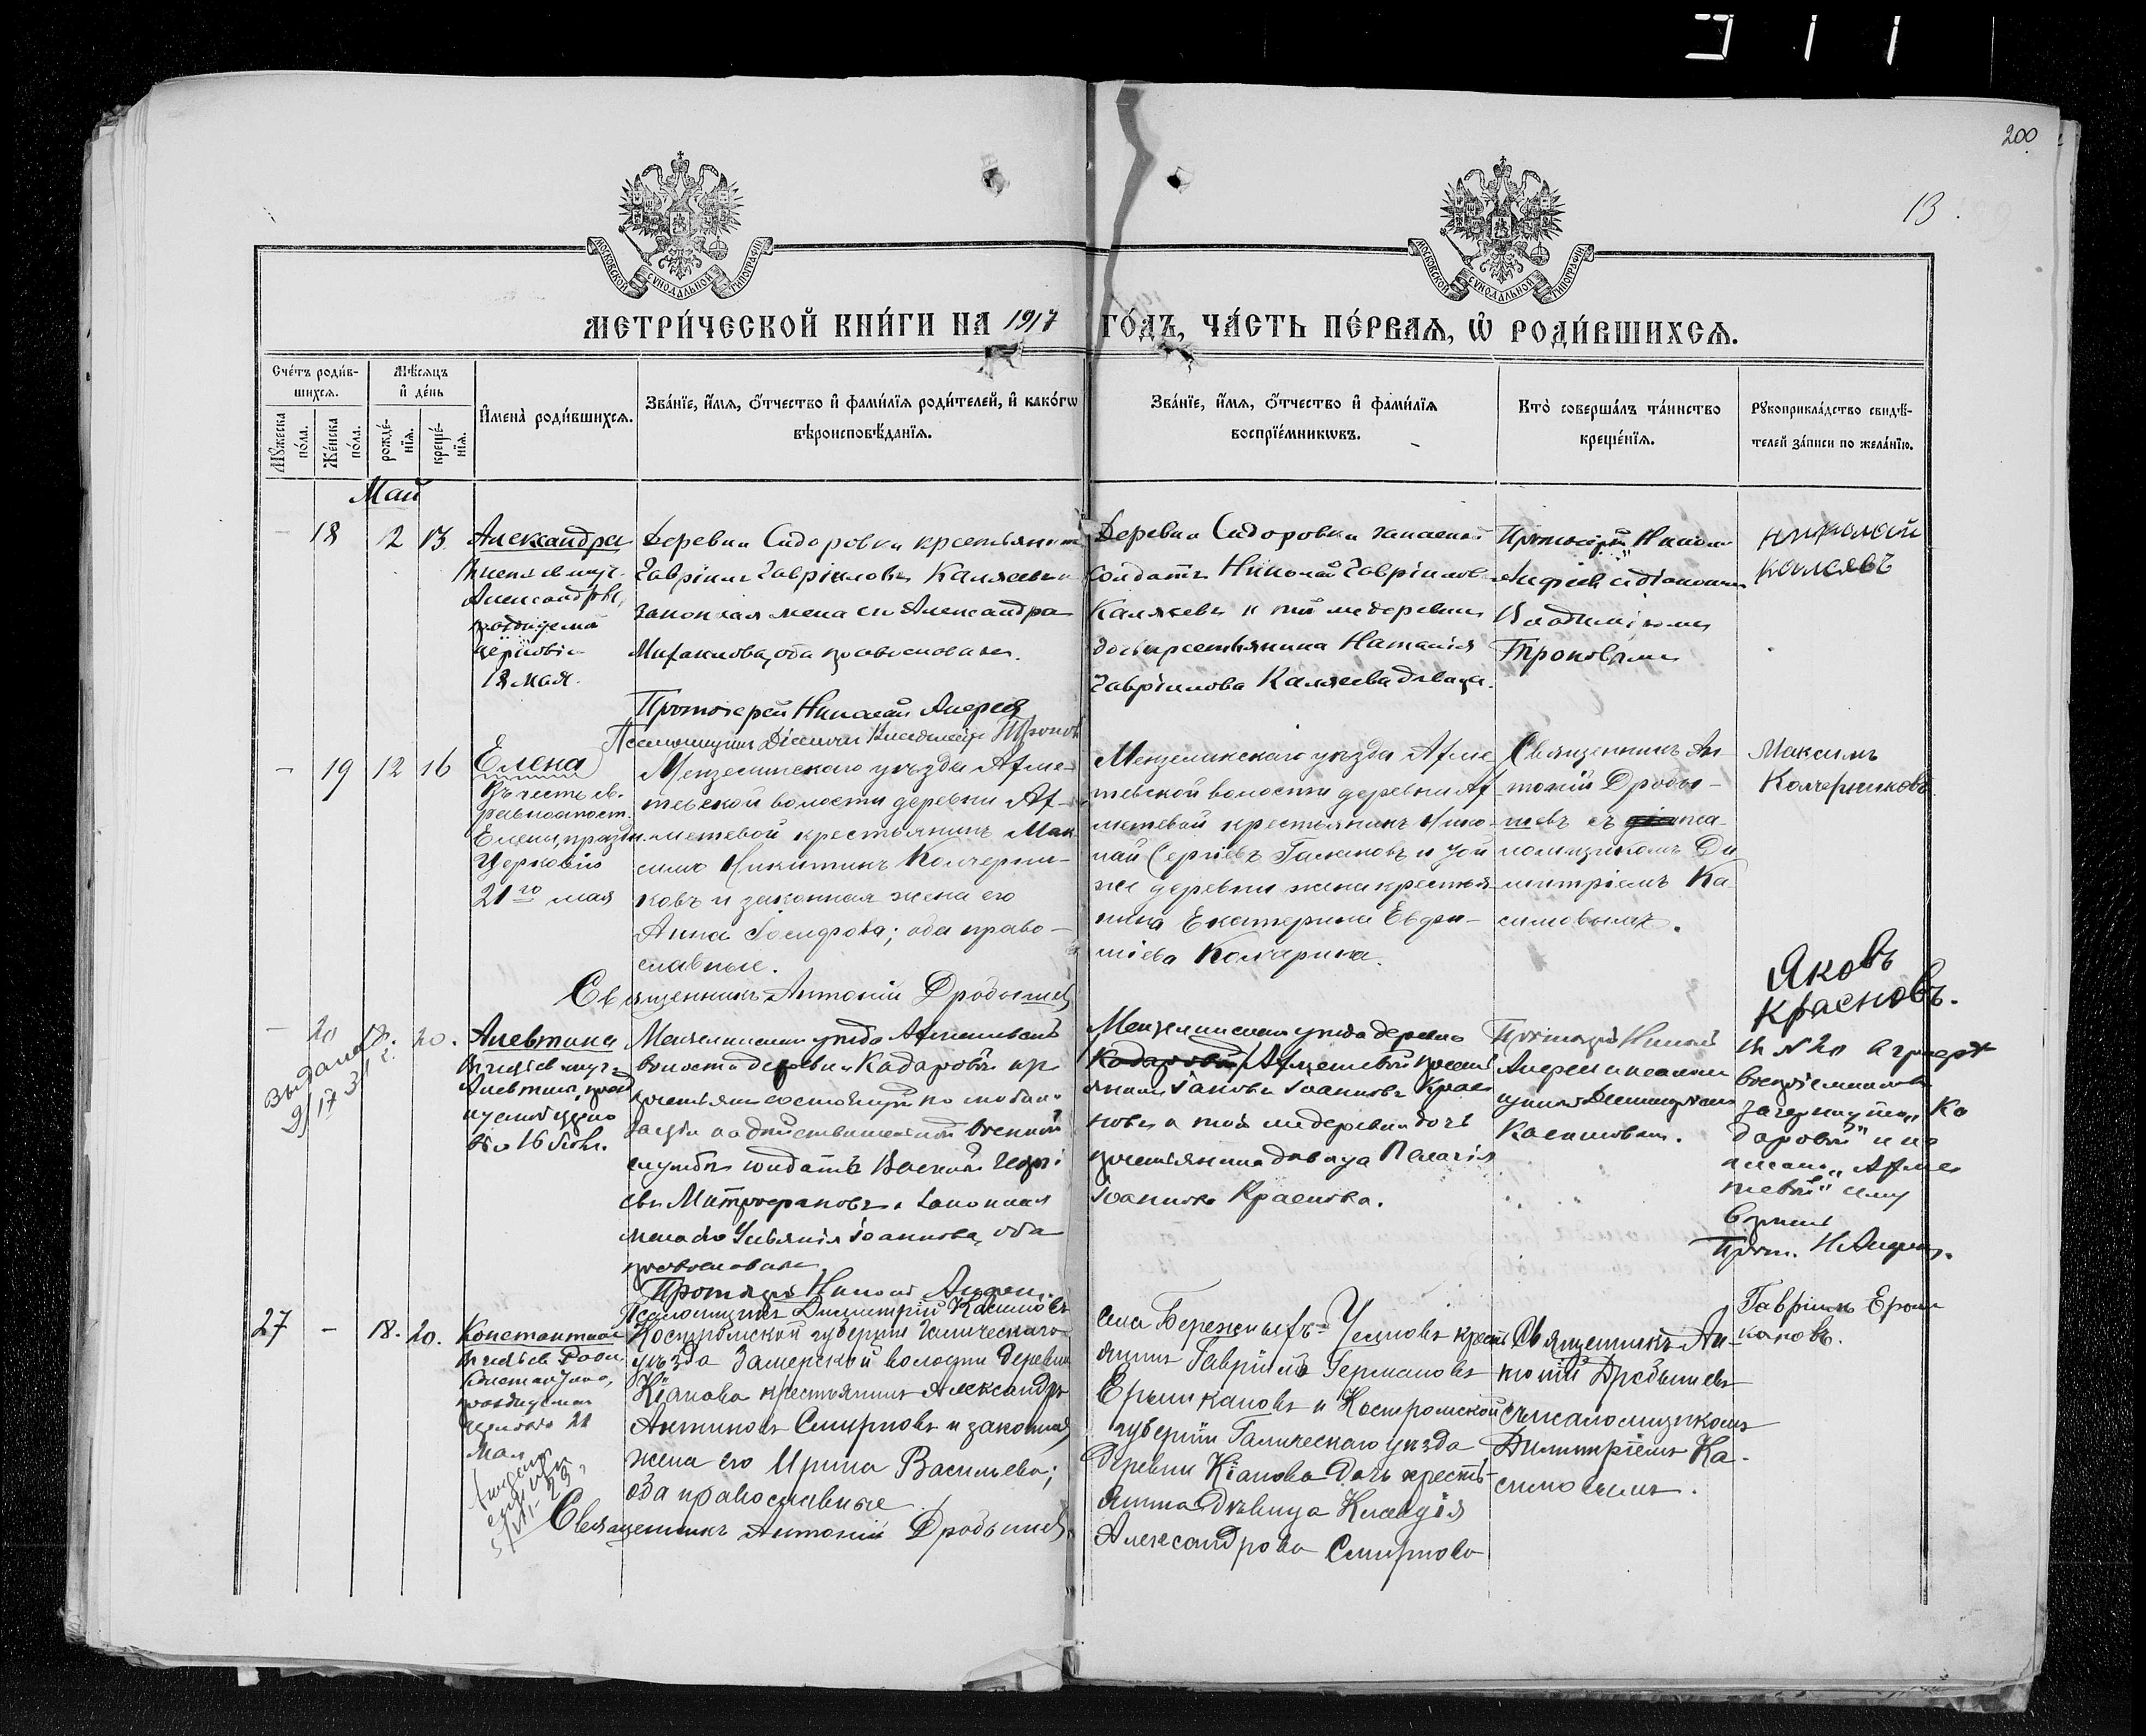 200
13
МОСКОВСКОЙ СѴНОДАЛЬНОЙ ТИПОГРАФІИ
МОСКОВСКОЙ СѴНОДАЛЬНОЙ ТИПОГРАФІИ
МЕТРИ́ЧЕСКОЙ КНИ́ГИ НА 1917 ГО́ДЪ, ЧА́СТЬ ПЕ́РВАЯ, Ѡ҆ РОДИ́ВШИХСЯ.
Сче́тъ роди́в-
шихся.
Мꙋ́жеска по́ла.
Же́нска по́ла.
Мѣ́сяцъ
и҆ де́нь
рожде́-
нїя.
креще́-
нїя.
И҆мена̀ роди́вшихся.
Зва́нїе, и҆́мя, ѻ҆́тчество и҆ фами́лїя роди́телей, и҆ како́гѡ
вѣроисповѣ́данїя.
Зва́нїе, и҆́мя, ѻ҆́тчество и҆ фами́лїя
воспрїе́мникѡвъ.
Кто̀ соверша́лъ та́инство
креще́нїя.
Рꙋкоприкла́дство свидѣ́-
телей за́писи по жела́нїю.
Май
- 18 2 13
Александра
Александры,
18 мая.
Деревни Сидоровки крестьянинъ
Гавріилъ Гавріиловъ Каляевъ и
законная жена его Александра
Михаилова, оба православные.
Протоіерей Николай
Псаломщикъ Діаконъ Владиміръ
Деревни Сидоровки запасной
солдатъ Николай Гавріиловъ
Каляевъ и той же деревни
дочь крестьянина Наталія
Гавріилова Каляева девица.
Протоіерей Николай
съ діакономъ
Владиміромъ
Николай
Каляевъ
- 19 12 16
Елена
Въ честь св.
равноапост.
Елены, праздн.
Церковію
21го мая
Мензелинскаго уѣзда Ахме-
тевской волости деревни Ах-
метевой крестьянинъ Мак-
симъ Никитинъ Колчерин-
ковъ и законная жена его
Анна Іосифова; оба право-
славные.
Священникъ Антоній Дробышевъ
Мензелинскаго уѣзда Ахме-
тевской волости деревни Ах-
метевой крестьянинъ Нико-
лай Сергіевъ Галановъ и той
же деревни жена крестья-
нина Екатерина Евдо-
Колчерина.
Священникъ Ан-
тоній Дробы-
шевъ съ пса-
ломщикомъ Ди-
митріемъ Ка-
симовымъ.
Максимъ
Колчерниковъ
- 20 18. 20.
Выдана
Алевтина
16 Іюл.
Мензелинскаго уѣзда Ахметевской
волости деревни Кадаровой
военной
службы солдатъ Василій
Митрофановъ и законная
жена его Іоаннова, оба
православные
Протоіерей Николай
Псаломщикъ Димитрій Касимовъ
Мензелинскаго уѣзда деревни
Кадаровой Ахметевой крест
янинъ Іаковъ Іоанновъ Крас
новъ и той же деревни дочь
крестьянина девица Пелагія
Іоаннова Краснова.
Протоіерей Николай
Димитріемъ
Касимовымъ.
Яковъ
Красновъ.
В № 20 въ графѣ
воспріемниковъ
зачеркнуто „Ка
даровой" и на
писано „Ахме
тевой" сему
верить
Прот. Н.
27 - 18. 20.
Константинъ
Константина,
21
Мая
Костромской губерніи Галическаго
уѣзда Замерской волости деревни
Кіанова крестьянинъ Александръ
Антиповъ Смирновъ и законная
жена его Ирина Васильева;
оба православные
Священникъ Антоній Дробышевъ.
села Бережныхъ-Челновъ крест
янинъ Гавріилъ Германовъ
и Костромской
губерніи Галическаго уѣзда
Деревни Кіанова дочь кресть-
янина дѣвица Клавдія
Александрова Смирнова
Священникъ Ан-
тоній Дробышевъ
съ псаломщикомъ
Димитріемъ Ка-
симовымъ.
Гавріилъ